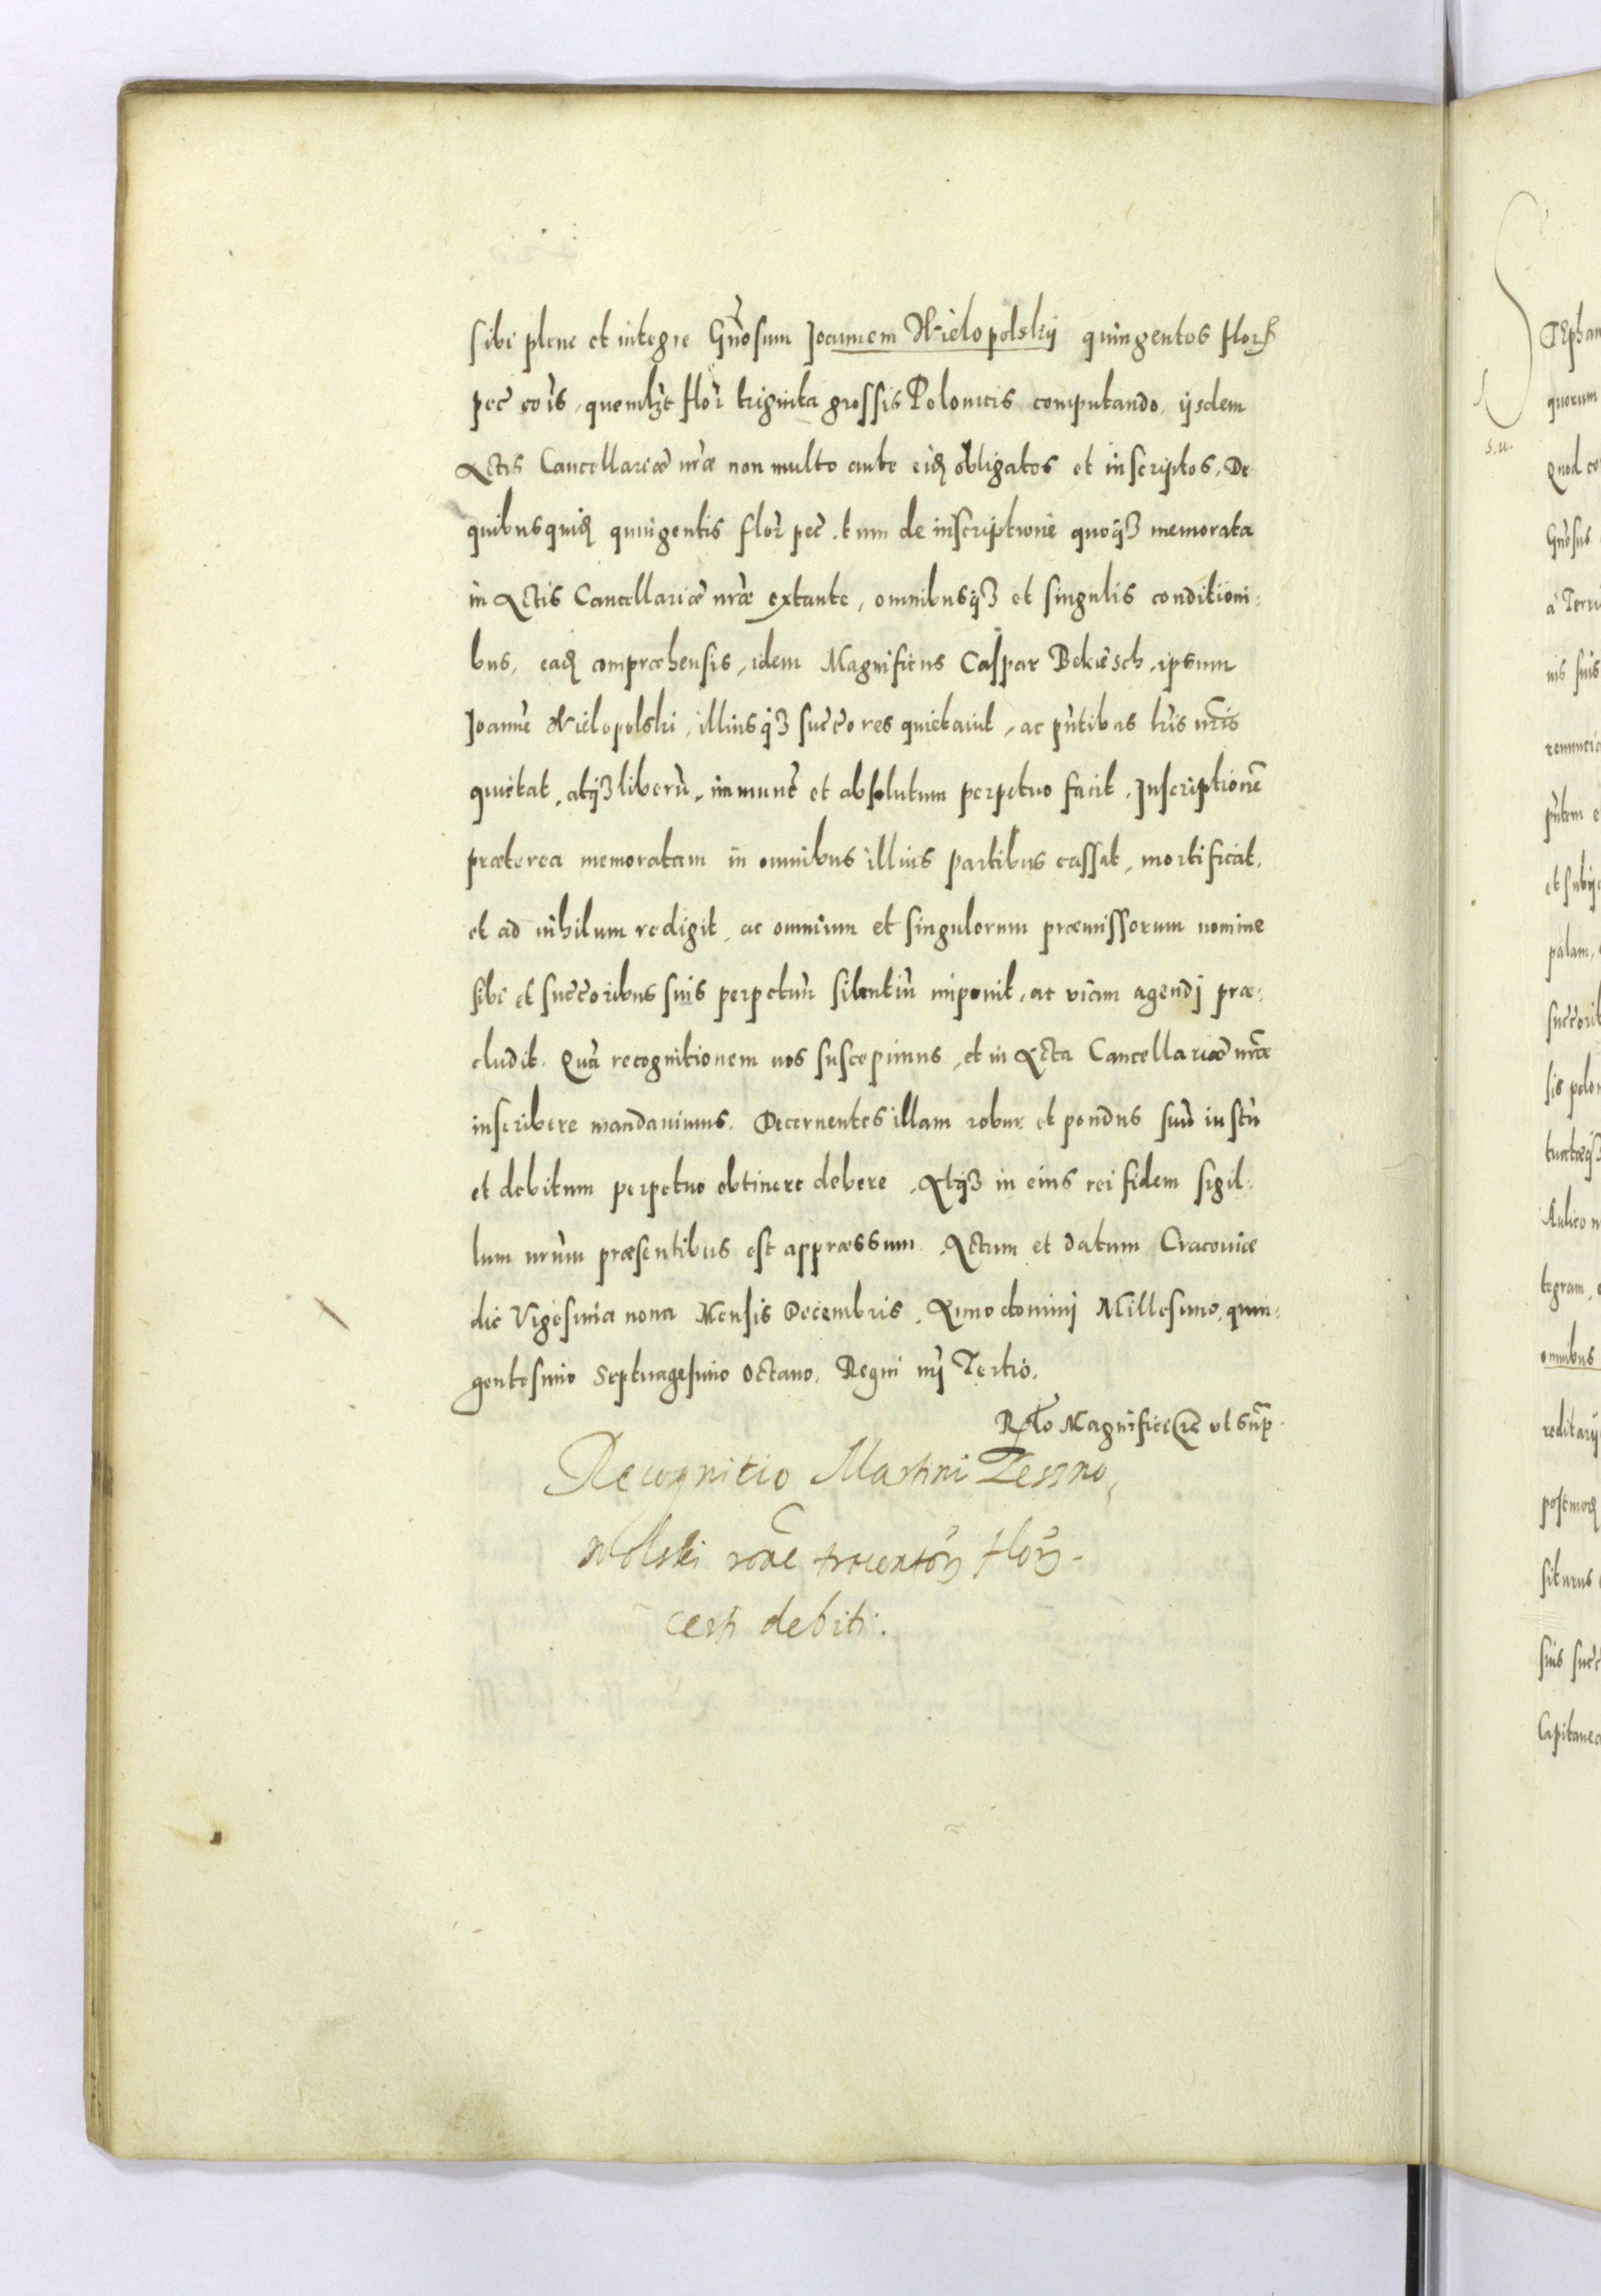 sibi plene et integre Gñosum Joannem Wielopolskij quingentos flor
pec̃ cois, quemlzt flor̃ triginta grossis Polonicis computando, ijsdem
Actis Cancellariæ nr̃æ non multo ante eidẽ obligatos et inscriptos. De
quibusquidẽ quingentis flor̃ pec̃. tum de inscriptione quoq3 memorata
in Actis Cancellariæ nr̃æ extante, omnibusq3 et singulis conditioni:
bus, eadẽ compræhensis, idem Magnificus Caspar Bekiesch, ipsum
Joannẽ Wielopolski, illiusq3 succ̃ores quietauit, ac pñtibus lr̃is nr̃is
quietat, atq3 liberũ, immunẽ et absolutum perpetuo facit. Inscriptionẽ
præterea memoratam in omnibus illius partibus cassat, mortificat,
et ad nihilum redigit, ac omnium et singulorum præmissorum nomine
sibi et succ̃oribus suis perpetuũ silentiũ imponit, ac viam agendj præ:
cludit. Quã recognitionem nos suscepimus, et in Acta Cancellariæ nr̃æ
inscribere mandauimus. Decernentes illam robur et pondus suũ iustũ
et debitum perpetuo obtinere debere. Atq3 in eius rei fidem sigil:
lum nr̃um præsentibus est appræssum. Actum et datum Cracouiæ
die Vigesima nona Mensis Decembris. Anno dominj Millesimo, quin:
gentesimo Septuagesimo Octauo. Regni nr̃j Tertio.
Rel̃o Magnifici &c̃ ut sup̃.
Recognitio Martini Leszno,
wolski rõne trecentor̃ flor̃
certi debiti.
S
TEphan
quorum
s.u.
Quod co
Gñosus
à Terri
nis suis
renuncia
pñtem e
et subij
palam,
succ̃orib
sis polon
tuatæq3
Aulico n
tegram,
omnibus
reditarij
postmodũ
siturus
suis succ̃
Capitanea